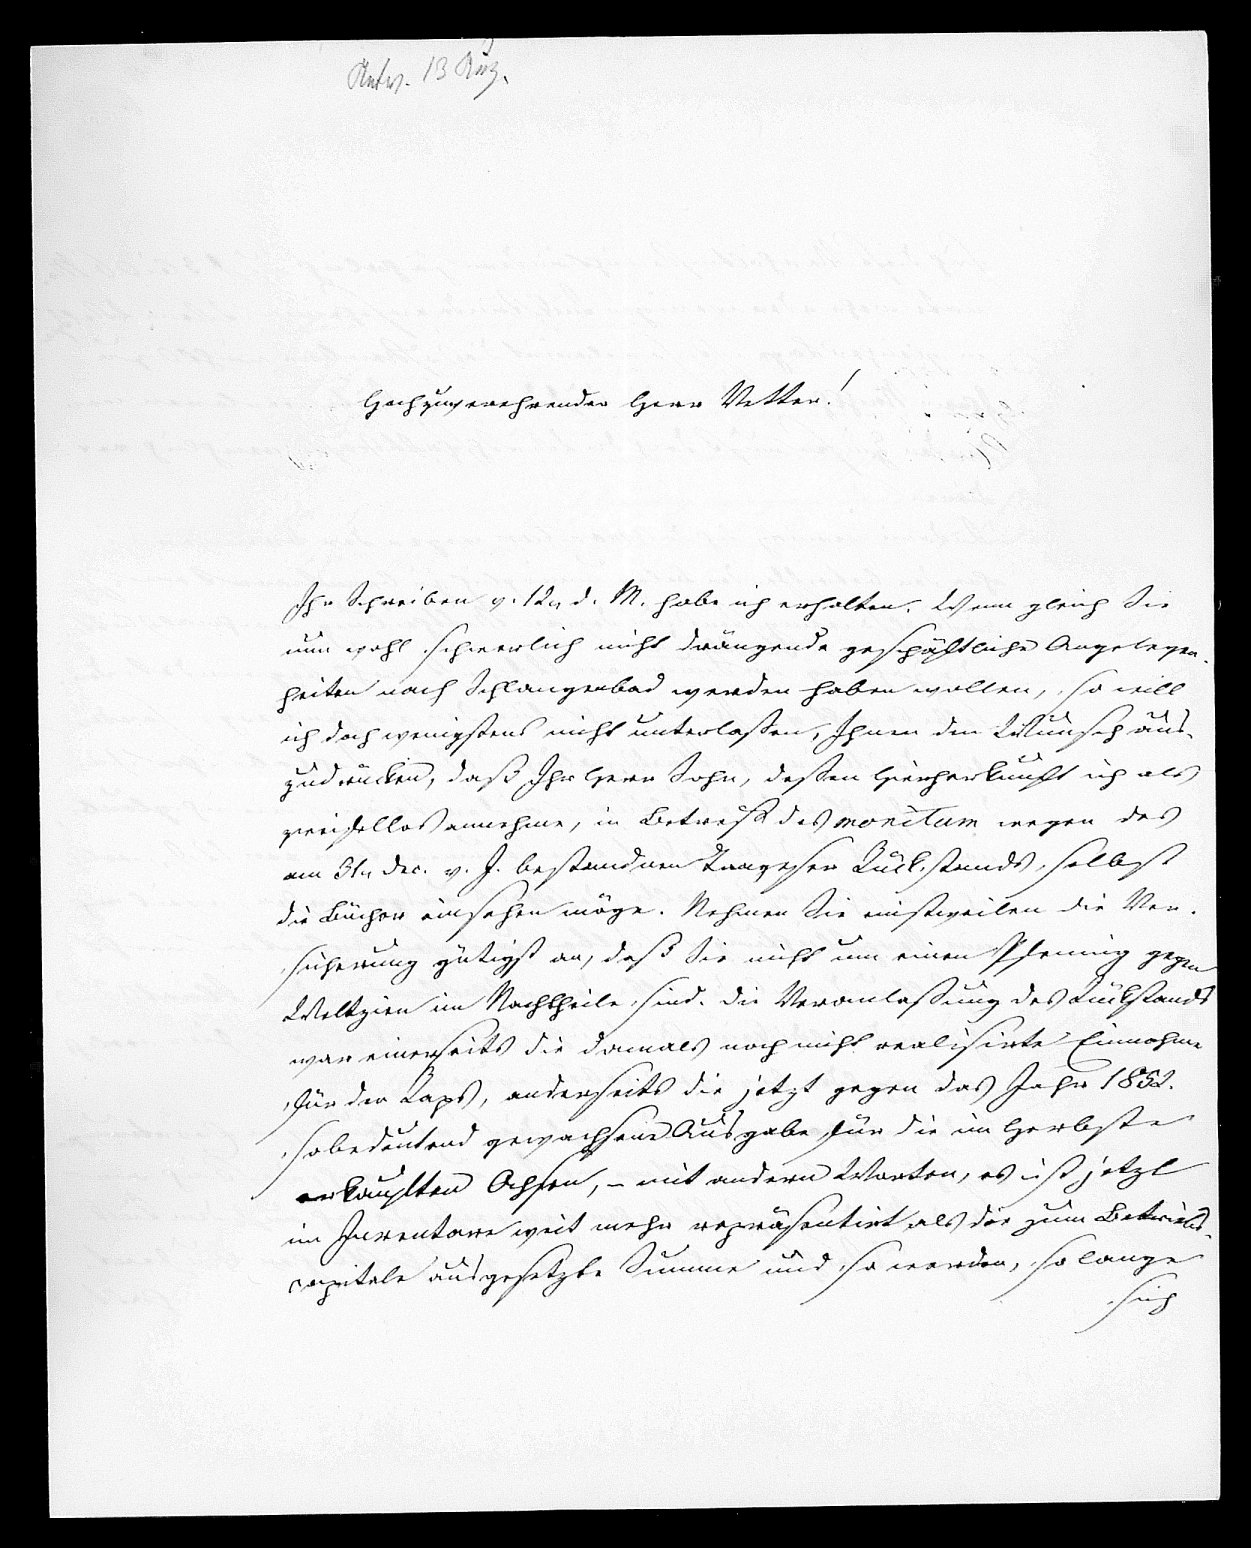 Antw. 13 Aug.
Hochzuverehrender Herr Vetter!
Ihr Schreiben v. 12n d. M. habe ich erhalten. Wenn gleich Sie
nun wohl schwerlich nicht drängende geschäftliche Angelegen-
heiten nach Schlangenbad werden haben wollen, so will
ich doch wenigstens nicht unterlaßen, Ihnen den Wunsch aus-
zudrücken, daß Ihr Herr Sohn, deßen Hierherkunft ich als
zweifellos annehme, in Betreff des monitum wegen des
am 31n Dec. v. J. bestandnen Rückstands selbst
die Bücher einsehen möge. Nehmen Sie einstweilen die Ver-
sicherung gütigst an, daß Sie nicht um einen Pfennig gegen
Weltzien im Nachtheile sind. Die Veranlaßung des Rückstands
war einerseits die damals noch nicht realisirte Einnahme
für den Raps, anderseits die jetzt gegen das Jahr 1852.
so bedeutend gewachsene Ausgabe für die im Herbste
erkauften Ochsen, – mit andern Worten, es ist jetzt
im Inventare weit mehr repräsentirt als die zum Betriebs-
capitale ausgesetzte Summe und so werden, so lange
sich